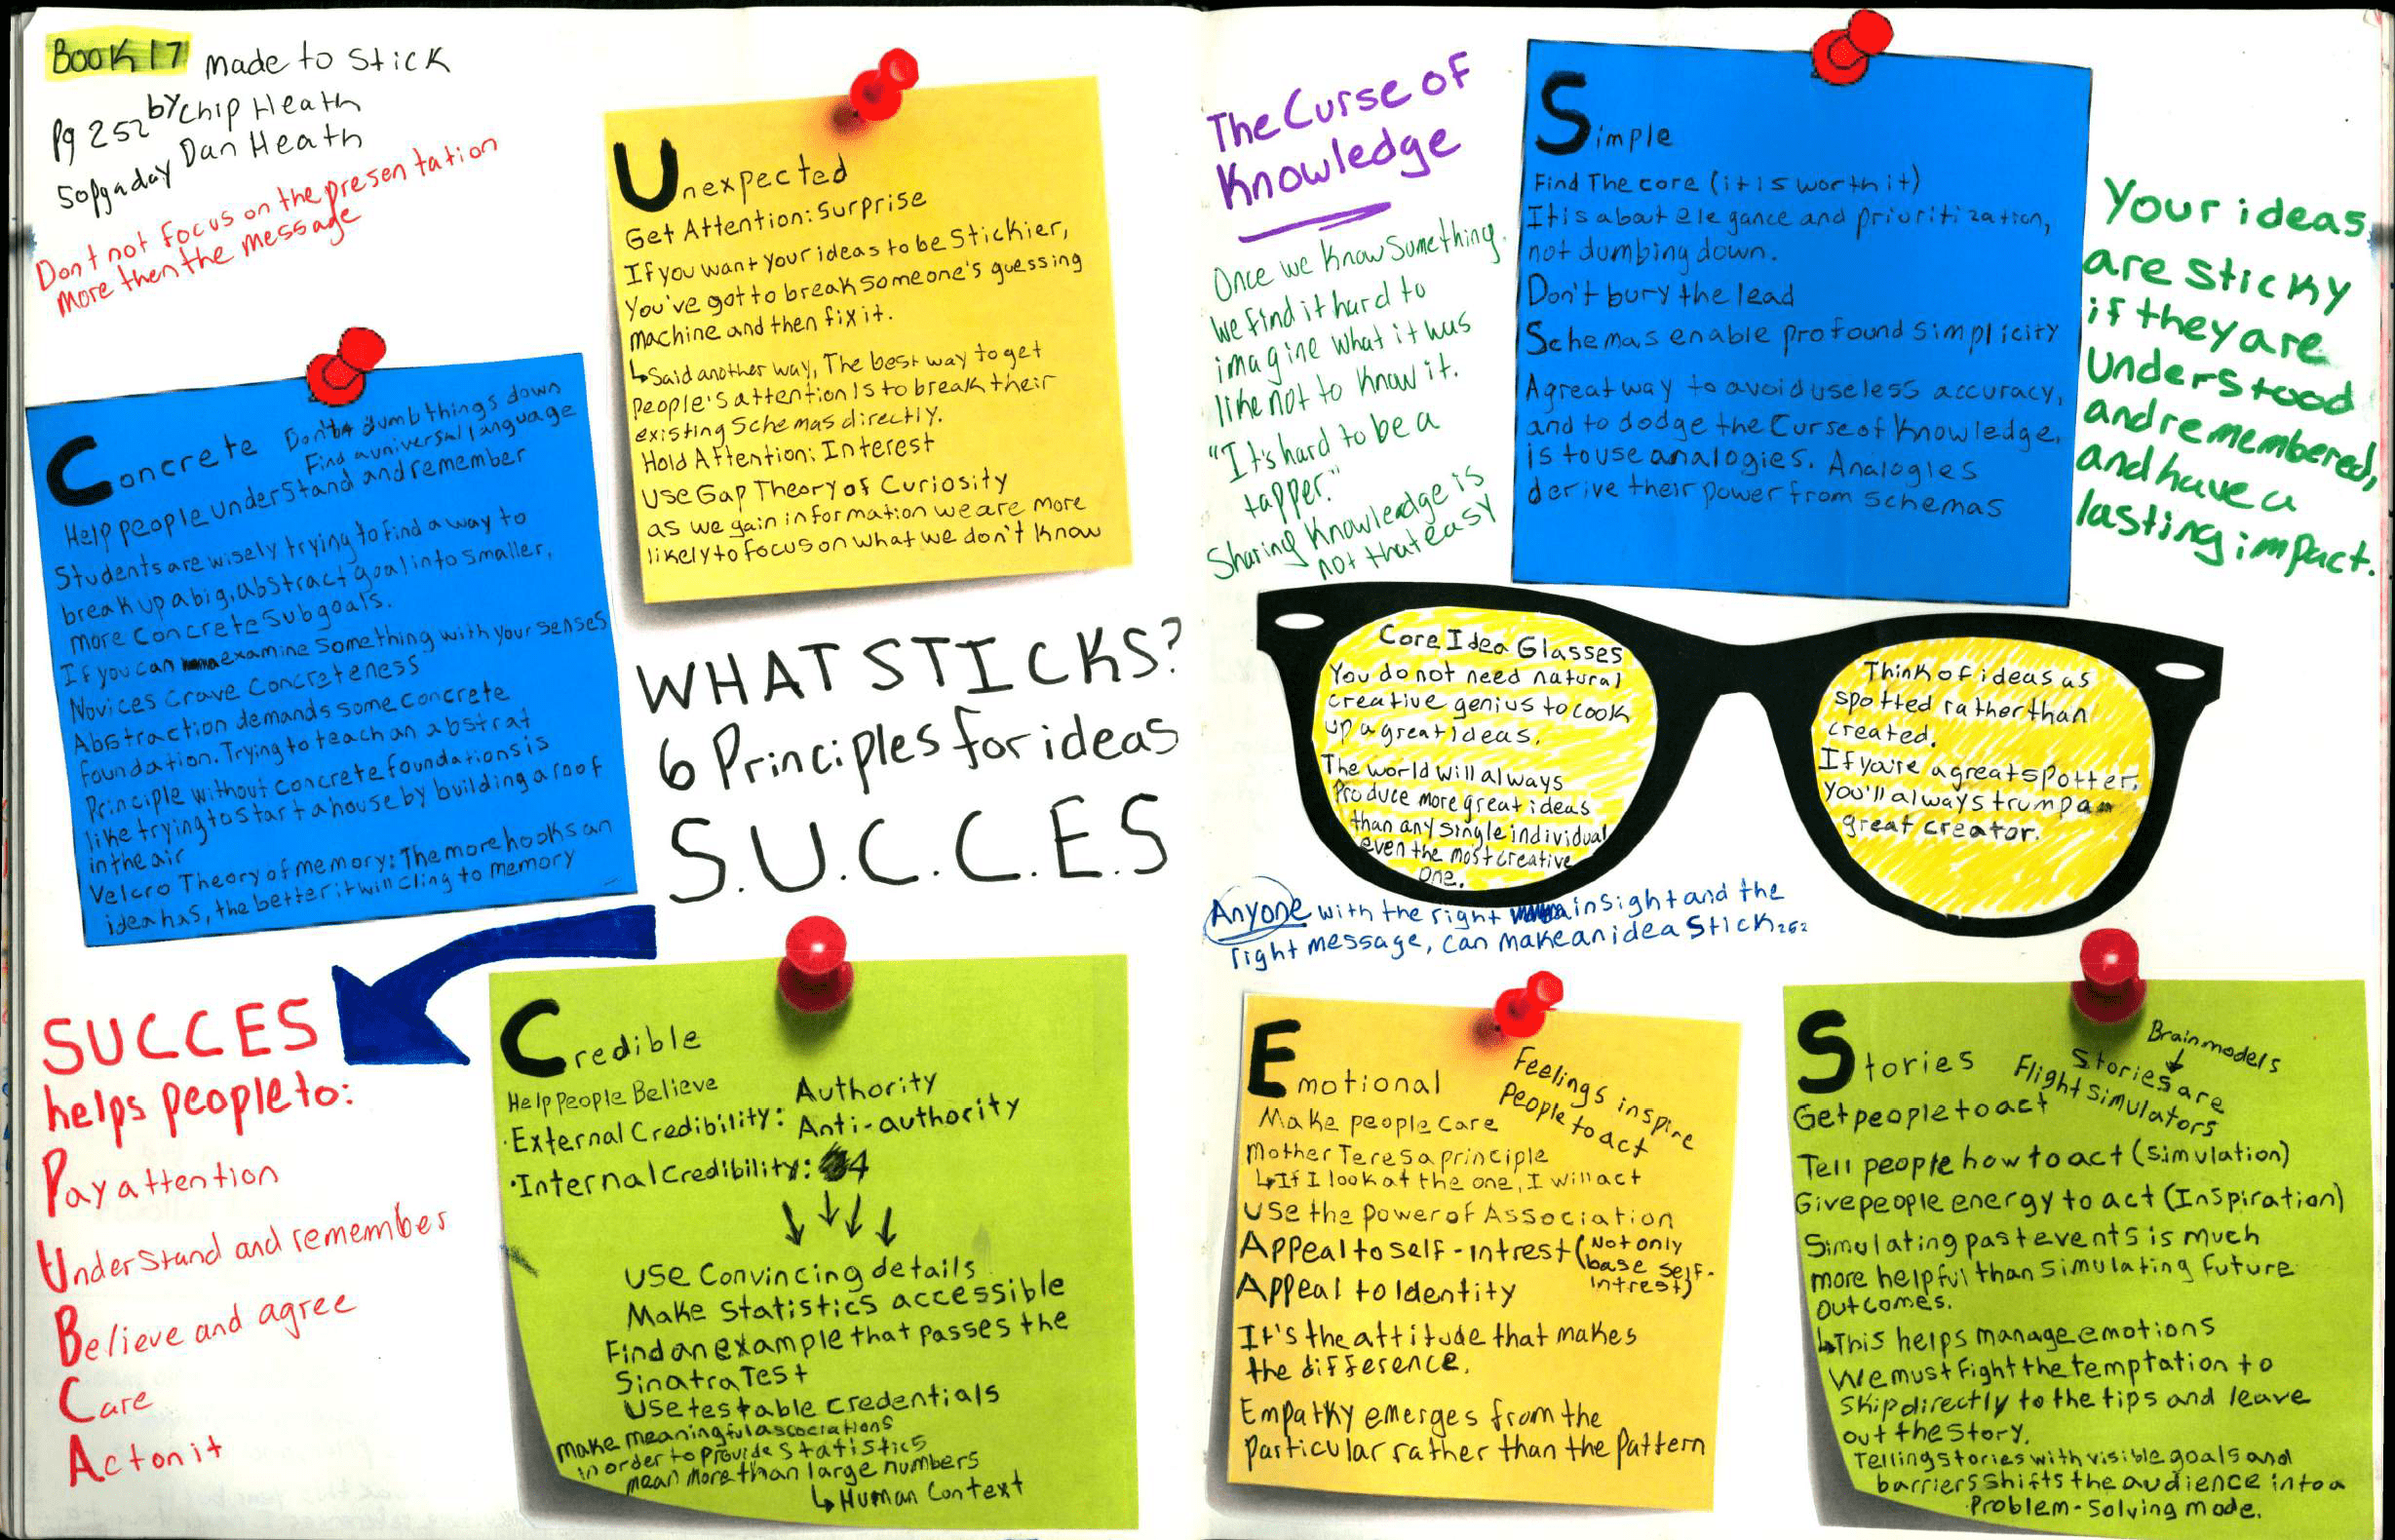 BOOK 17 Made to Stick
by Chip Heath
Pg 252
Dan Heath
50pg a day
Dont not focus on the presentation
more then the message
Unexpected
Get Attention: Surprise
If you want your ideas to be Stickier,
You've got to break someone's guessing
machine and then fix it.
↳Said another way, The best way to get
People's attention Is to break their
existing Schemas directly.
Hold Attention: Interest
Use Gap Theory of Curiosity
as we gain information we are more
likely to focus on what we don't know
Concrete Don't dumb things down
Find a universal language
Help people understand and remember
Students are wisely trying to find a way to
break up a big, abstract goal into smaller,
more concrete Subgoals.
If you can examine Something with your senses
Novices Crave Concreteness
Abstraction demands some concrete
foundation. Trying to teach an abstrat
Principle without concrete foundations is
like trying to start a house by building a roof
in the air
Velcro Theory of memory: The more hooks an
idea has, the better it will cling to memory
WHAT STICKS?
6 Principles for ideas
S.U.C.C.E.S
SUCCES
helps people to:
Pay attention
Understand and remember
Believe and agree
Care
Act on it
Credible
Help People Believe
Authority
·External Credibility: Anti-authority
·Internal Credibility: 4
Use Convincing details
Make Statistics accessible
Find an example that passes the
Sinatra Test
Use testable credentials
Make meaningful associations
in order to provide Statistics
mean more than large numbers
↳Human Context
The Curse of
Knowledge
Once we know something.
we find it hard to
imagine what it was
like not to know it.
"It's hard to be a
tapper."
Sharing Knowledge is
not that easy
Simple
Find The core (it is worth it)
It is about elegance and prioritization,
not dumbing down.
Don't bury the lead
Schemas enable profound simplicity
A great way to avoid useless accuracy,
and to dodge the Curse of Knowledge,
is to use analogies. Analogies
derive their power from schemas
Your ideas
are sticky
if they are
understood
and remembered,
and have a
lasting impact.
Core Idea Glasses
You do not need natural
creative genius to cook
up a great ideas.
The world will always
Produce more great ideas
than any single individual
even the most creative
one.
Think of ideas as
spotted rather than
created.
If you're a great spotter,
You'll always trump a
great creator.
Anyone with the right insight and the
right message, can make an idea Stick 252
Emotional
Feelings inspire
People to act
Make people care
Mother Teresa principle
↳If I look at the one, I will act
Use the power of Association
Appeal to self-intrest (Not only
base self-
intrest)
Appeal to Identity
It's the attitude that makes
the difference.
Empathy emerges from the
Particular rather than the Pattern
Stories
Brain models
Stories are
Flight Simulators
Get people to act
Tell people how to act (Simulation)
Give people energy to act (Inspiration)
Simulating past events is much
more helpful than simulating future
outcomes.
↳This helps manage emotions
We must fight the temptation to
Skip directly to the tips and leave
out the Story.
Telling stories with visible goals and
barriers shifts the audience into a
Problem-Solving mode.